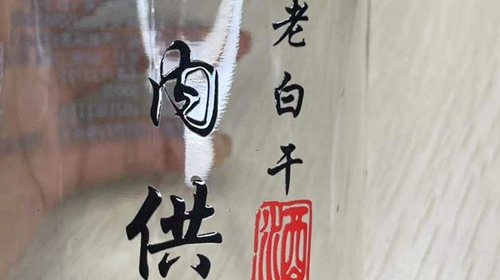 老白干酒
内供